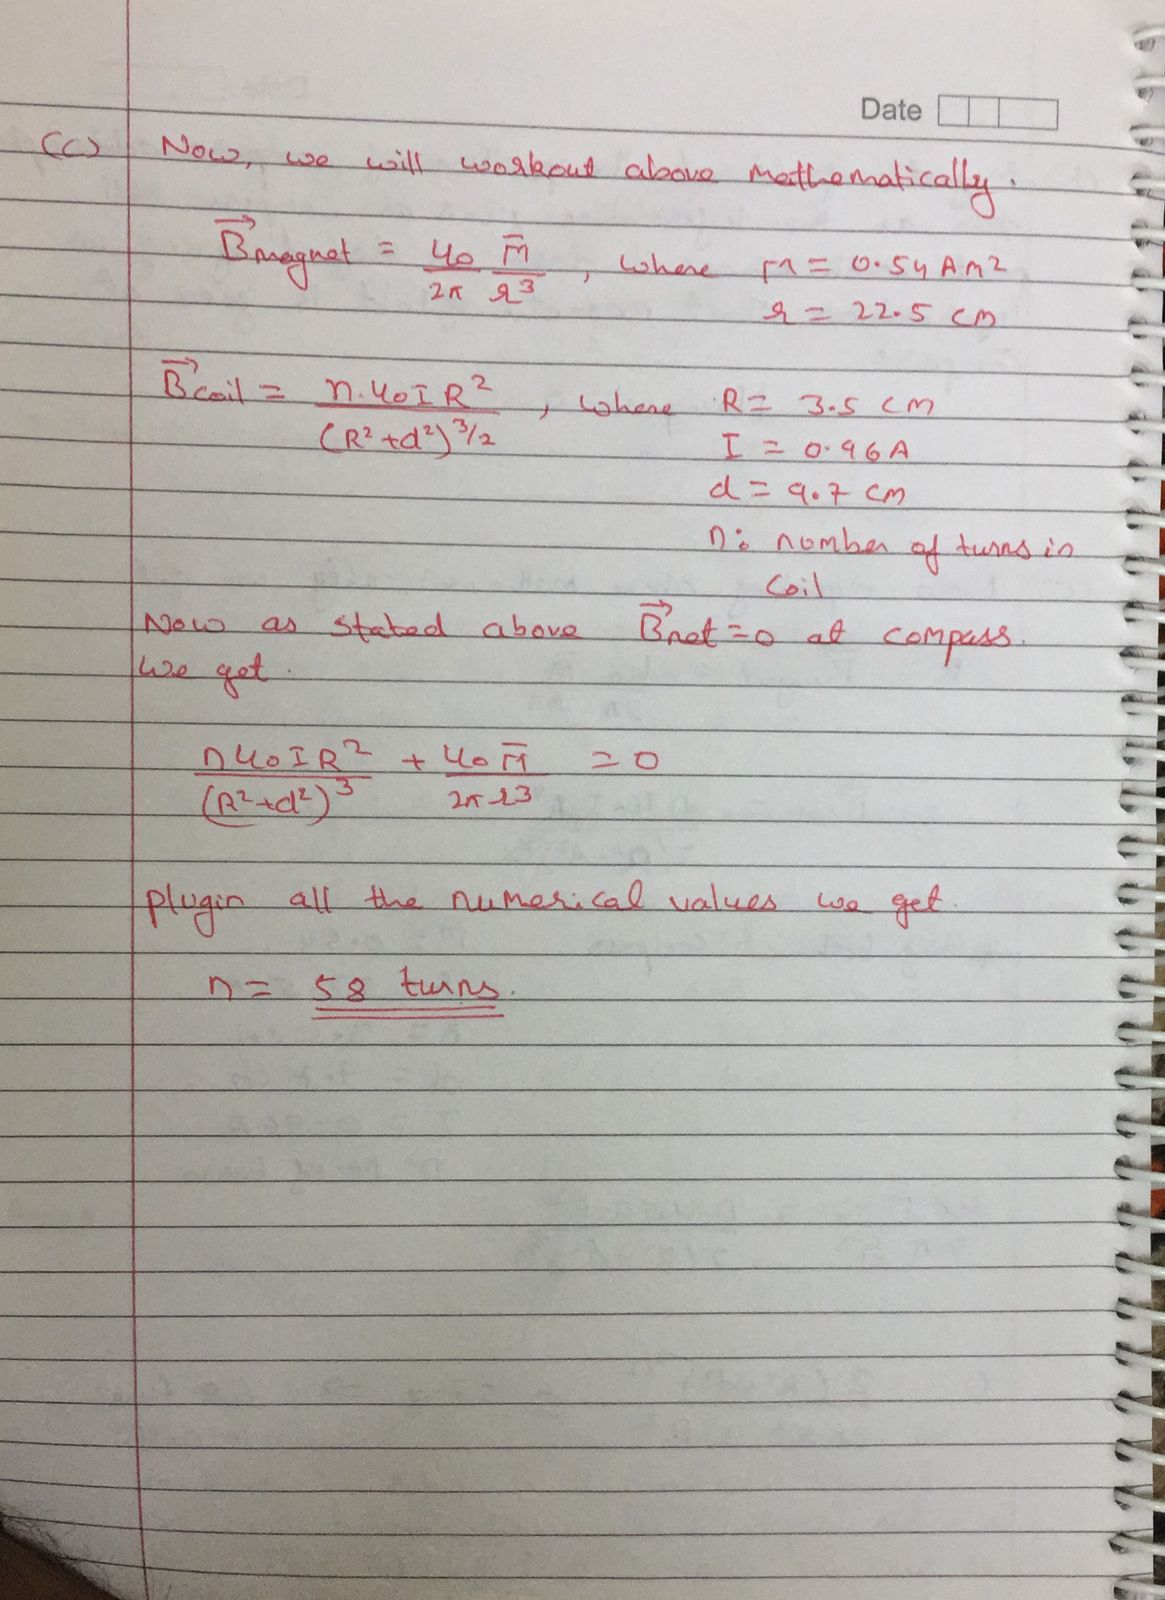 Date
(c) Now, we will workout above mathematically.
B⃗magnet = μ0 M̄ / 2π r³ , where M = 0.54 Am²
r = 22.5 cm
B⃗coil = n.μ0 I R² / (R²+d²)^3/2 , where R = 3.5 cm
I = 0.96 A
d = 9.7 cm
n: number of turns in
coil
Now as stated above B⃗net = 0 at compass.
We get.
nμ0 I R² / (R²+d²)³ + μ0 M̄ / 2π r³ = 0
plugin all the numerical values we get.
n = 58 turns.